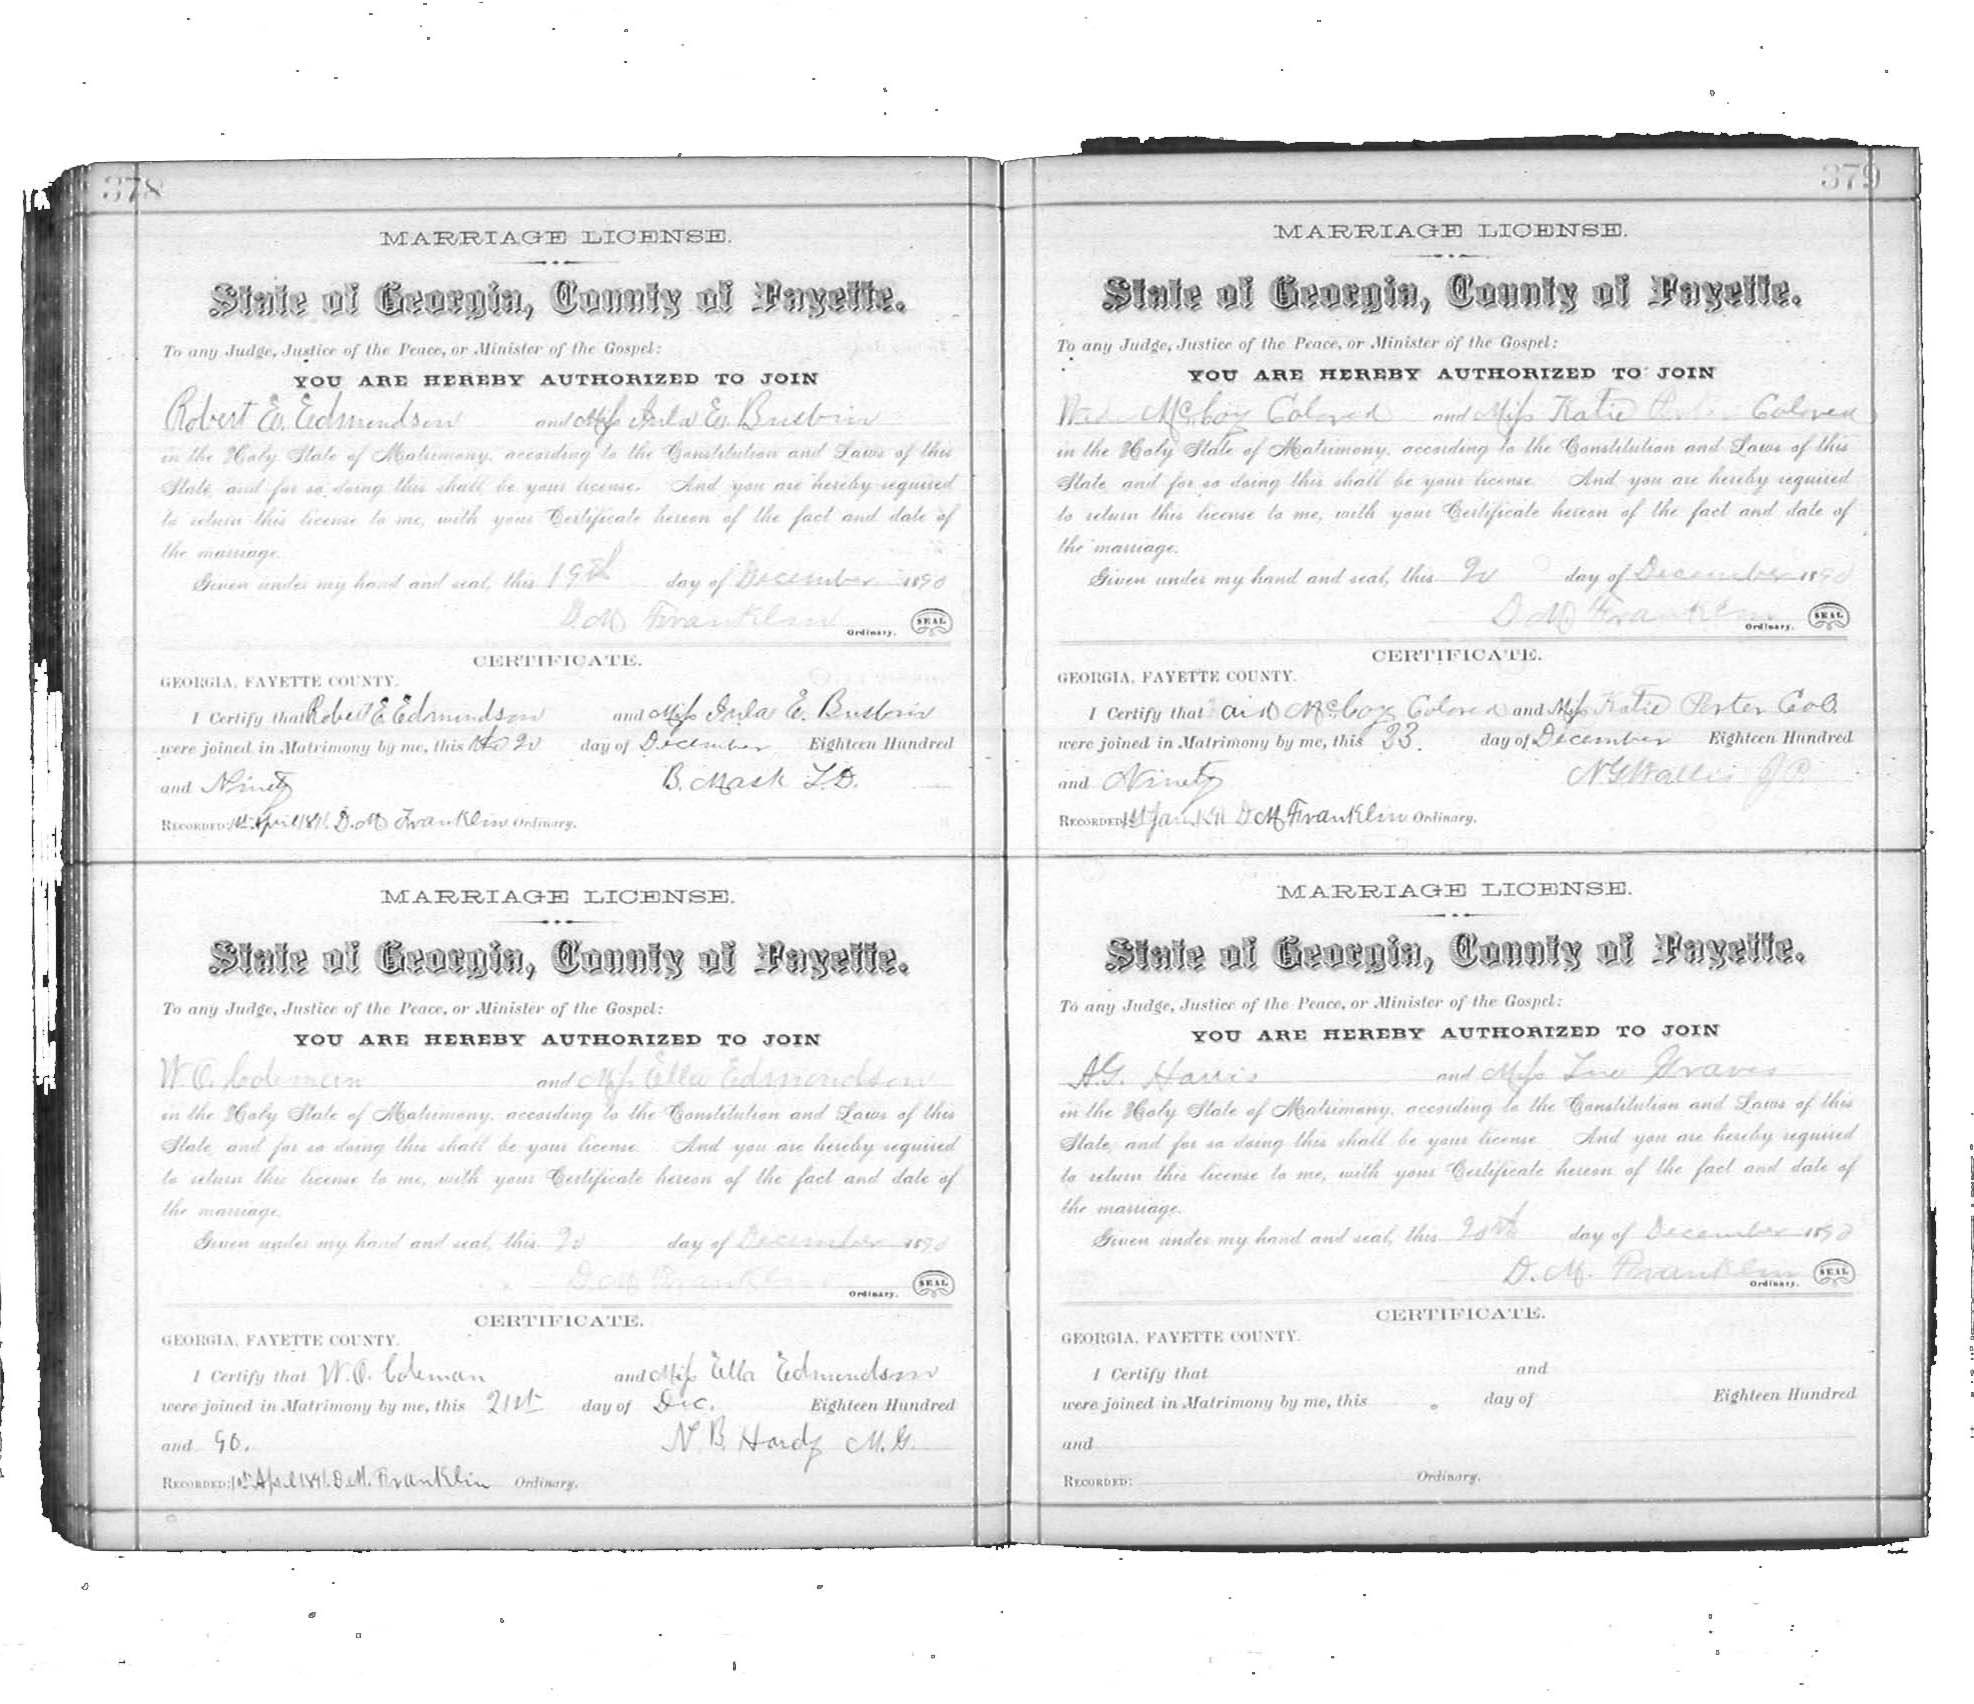 378
MARRIAGE LICENSE.
State of Georgia, County of Fayette.
To any Judge, Justice of the Peace, or Minister of the Gospel:
YOU ARE HEREBY AUTHORIZED TO JOIN
Robert E. Edmondson and Miss Eula E. Busbin
in the Holy State of Matrimony, according to the Constitution and Laws of this
State, and for so doing this shall be your license. And you are hereby required
to return this license to me, with your Certificate hereon of the fact and date of
the marriage.
Given under my hand and seal, this 19th day of December 1890
D. M Franklin
Ordinary. SEAL
CERTIFICATE.
GEORGIA, FAYETTE COUNTY.
I Certify that Robert E Edmondson and Miss Eula E. Busbin
were joined in Matrimony by me, this day of December Eighteen Hundred
and Ninety B. Mask L.D.
RECORDED: 1st April 1891. D. M Franklin Ordinary.
MARRIAGE LICENSE.
State of Georgia, County of Fayette.
To any Judge, Justice of the Peace, or Minister of the Gospel:
YOU ARE HEREBY AUTHORIZED TO JOIN
W. O. Coleman and Miss Ella Edmondson
in the Holy State of Matrimony, according to the Constitution and Laws of this
State, and for so doing this shall be your license. And you are hereby required
to return this license to me, with your Certificate hereon of the fact and date of
the marriage.
Given under my hand and seal, this 20 day of December 1890
D. M Franklin
Ordinary. SEAL
CERTIFICATE.
GEORGIA, FAYETTE COUNTY.
I Certify that W. O. Coleman and Miss Ella Edmondson
were joined in Matrimony by me, this 21st day of Dec. Eighteen Hundred
and 90. N. B. Hardy M. G.
RECORDED: 1st April 1891. D. M. Franklin Ordinary.
379
MARRIAGE LICENSE.
State of Georgia, County of Fayette.
To any Judge, Justice of the Peace, or Minister of the Gospel:
YOU ARE HEREBY AUTHORIZED TO JOIN
McCoy Colored and Miss Katie Colored
in the Holy State of Matrimony, according to the Constitution and Laws of this
State, and for so doing this shall be your license. And you are hereby required
to return this license to me, with your Certificate hereon of the fact and date of
the marriage.
Given under my hand and seal, this 20 day of December 1890
D M Franklin
Ordinary. SEAL
CERTIFICATE.
GEORGIA, FAYETTE COUNTY.
I Certify that McCoy Colored and Miss Katie Porter Col.
were joined in Matrimony by me, this 23. day of December Eighteen Hundred
and Ninety N G Wallis J P.
RECORDED: D M Franklin Ordinary.
MARRIAGE LICENSE.
State of Georgia, County of Fayette.
To any Judge, Justice of the Peace, or Minister of the Gospel:
YOU ARE HEREBY AUTHORIZED TO JOIN
A. G. Harris and Miss Graves
in the Holy State of Matrimony, according to the Constitution and Laws of this
State, and for so doing this shall be your license. And you are hereby required
to return this license to me, with your Certificate hereon of the fact and date of
the marriage.
Given under my hand and seal, this 20th day of December 1890
D. M. Franklin
Ordinary. SEAL
CERTIFICATE.
GEORGIA, FAYETTE COUNTY.
I Certify that and
were joined in Matrimony by me, this day of Eighteen Hundred
and
RECORDED: Ordinary.